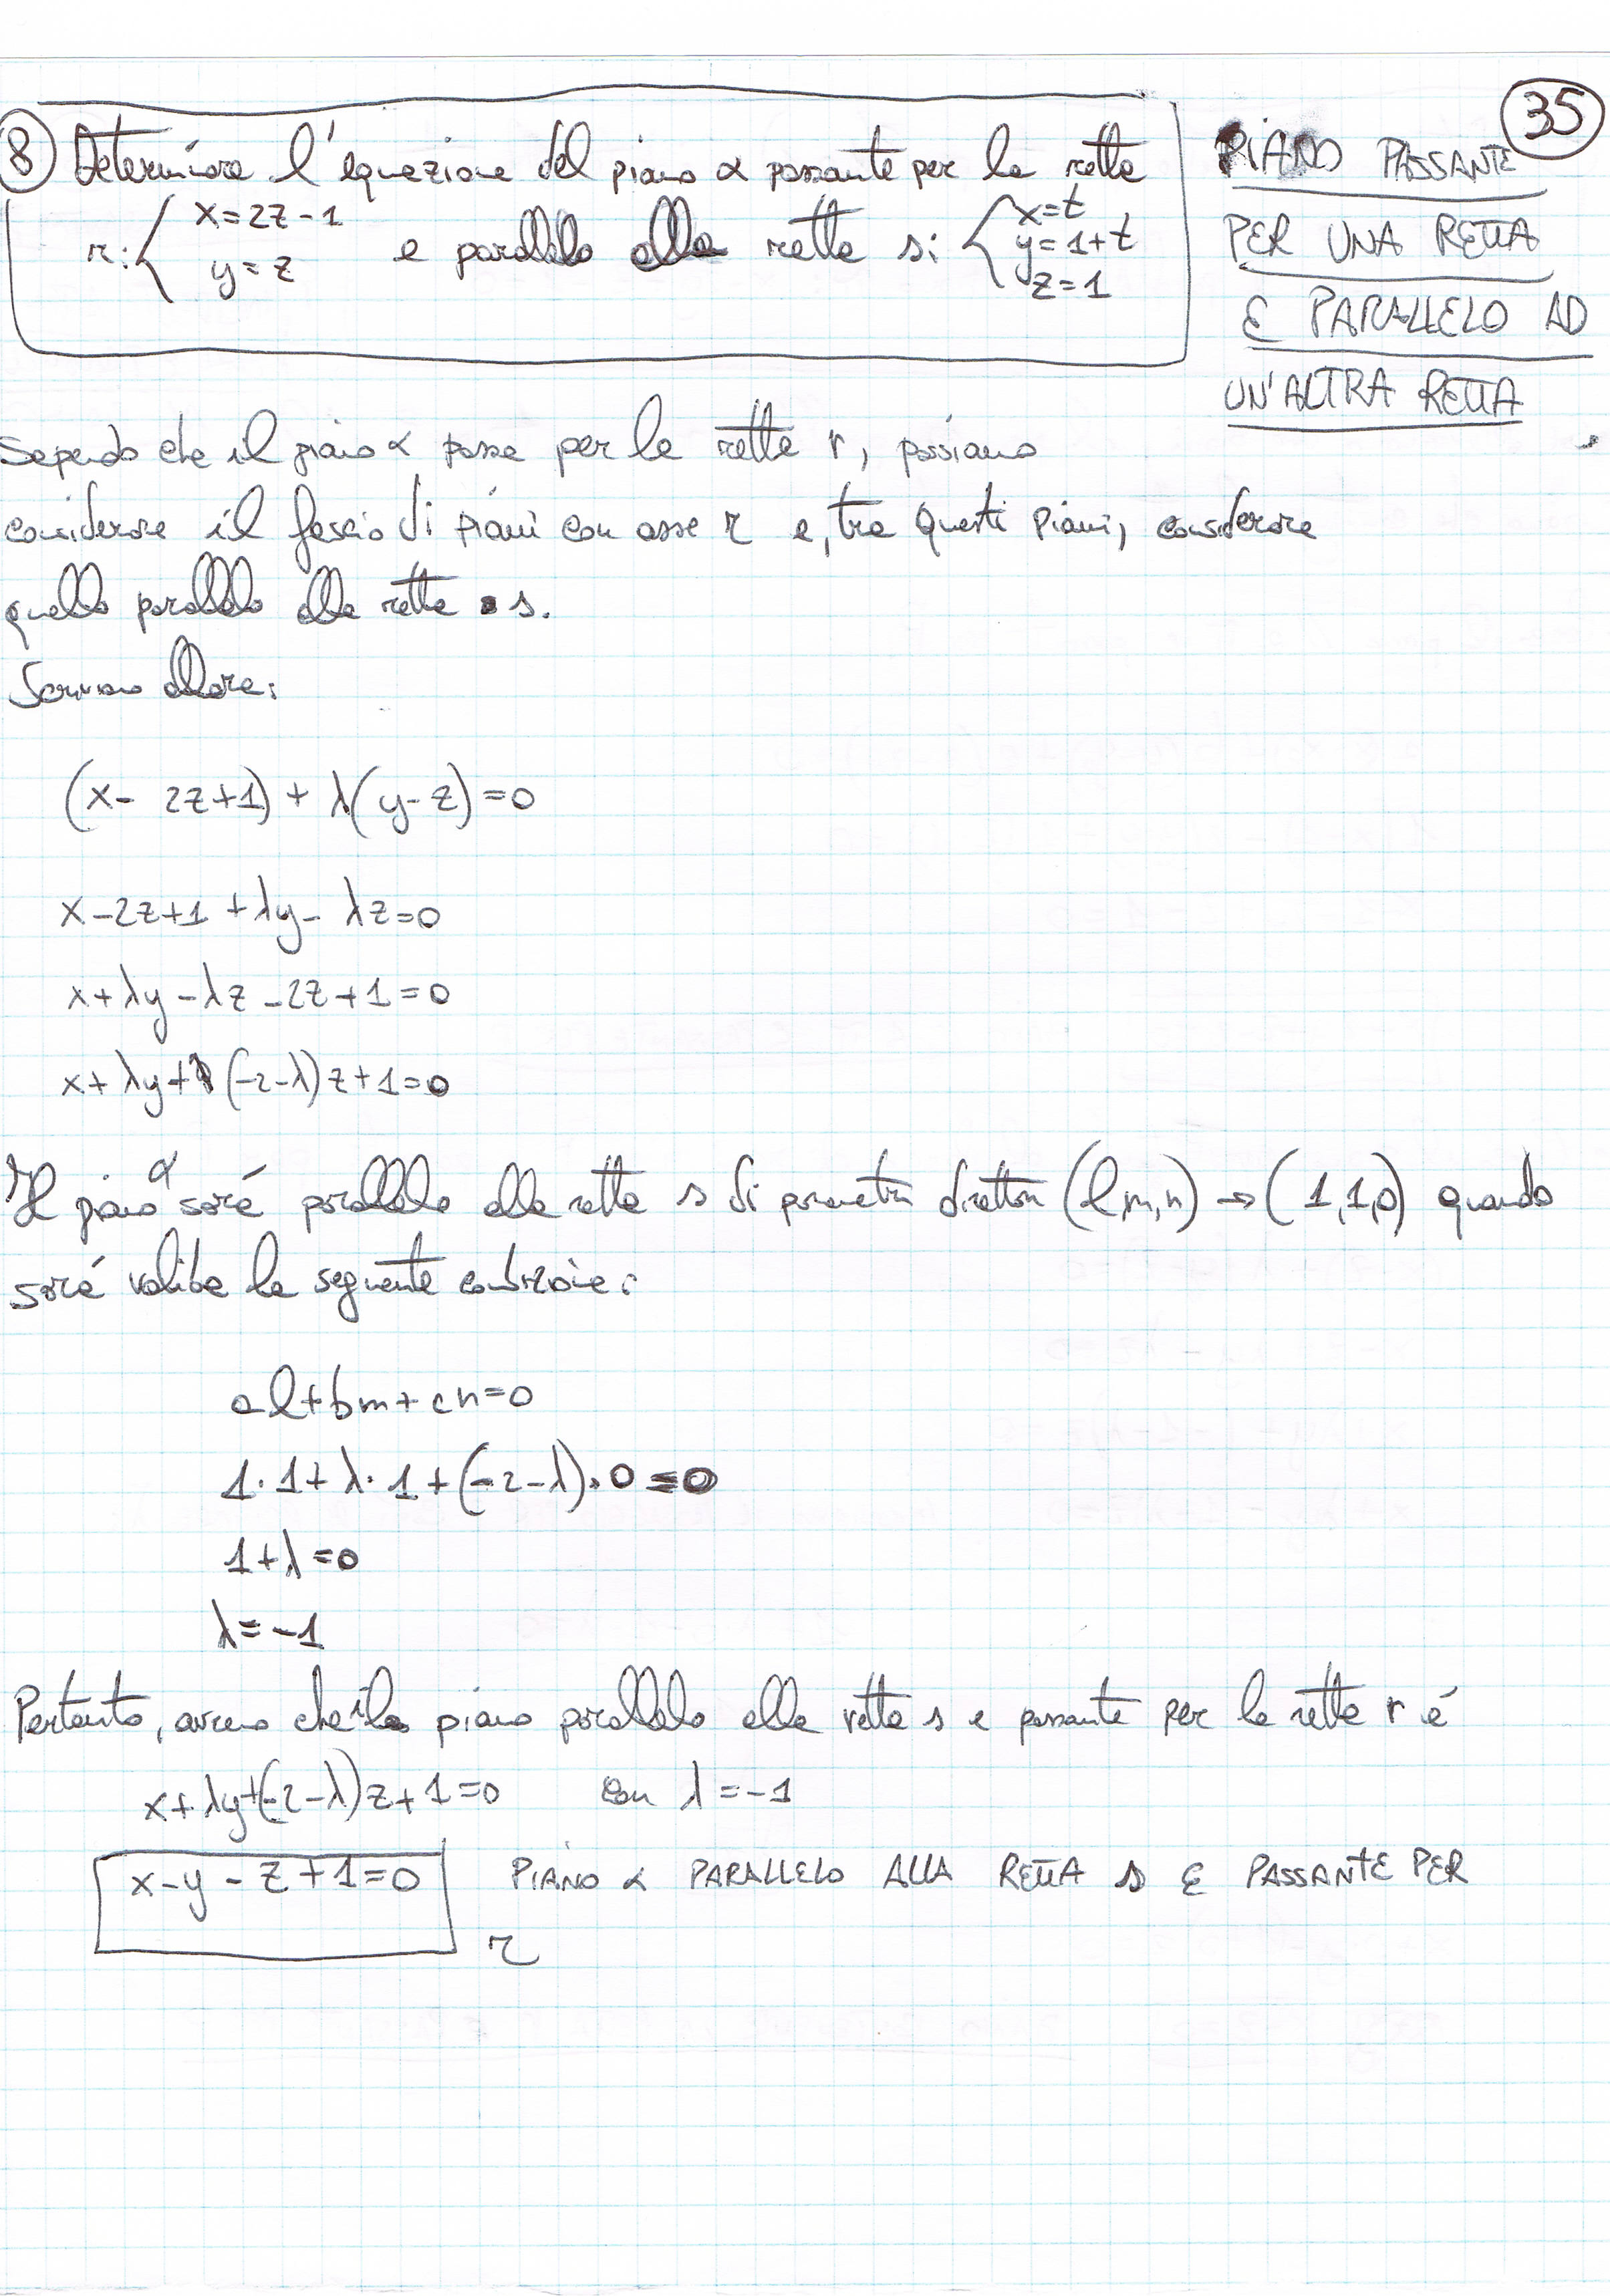 35
8) Determinare l'equazione del piano α passante per la retta
r: { x=2z-1
y=z
e parallelo alla retta s: { x=t
y=1+t
z=1
PIANO PASSANTE
PER UNA RETTA
E PARALLELO AD
UN'ALTRA RETTA
Sapendo che il piano α passa per la retta r, possiamo
considerare il fascio di piani con asse r e, tra questi piani, considerare
quello parallelo alla retta s.
Scriviamo allora:
(x- 2z+1) + λ(y-z)=0
x-2z+1 +λy- λz=0
x+λy-λz-2z+1=0
x+λy+(-2-λ)z+1=0
Il piano α sará parallelo alla retta s di parametri direttori (l,m,n) → (1,1,0) quando
sará valida la seguente condizione:
al+bm+cn=0
1·1+λ·1+(-2-λ)·0=0
1+λ=0
λ=-1
Pertanto, avremo che il piano parallelo alla retta s e passante per la retta r é
x+λy+(-2-λ)z+1=0 con λ=-1
x-y-z+1=0 PIANO α PARALLELO ALLA RETTA s E PASSANTE PER
r